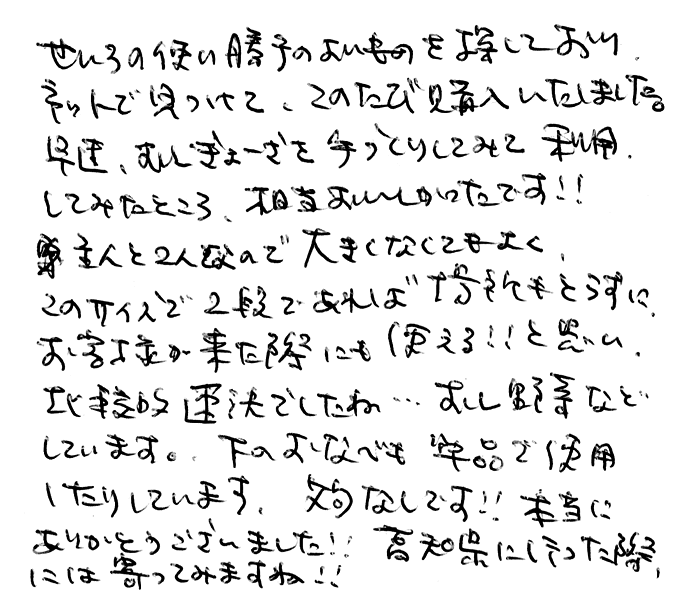 せいろの使い勝手のよいものを探しており、
ネットで見つけて、このたび購入いたしました。
早速、むしぎょーざを手づくりしてみて利用
してみたところ、相当おいしかったです!!
主人と2人なので大きくなくてもよく、
このサイズで2段であれば場所もとらずに、
お客様が来た際にも使える!!と思い、
比較的速決でしたね…むし野菜など
しています。下のおなべも単品で使用
したりしています。文句なしです!!本当に
ありがとうございました!!高知県に行った際
には寄ってみますね!!